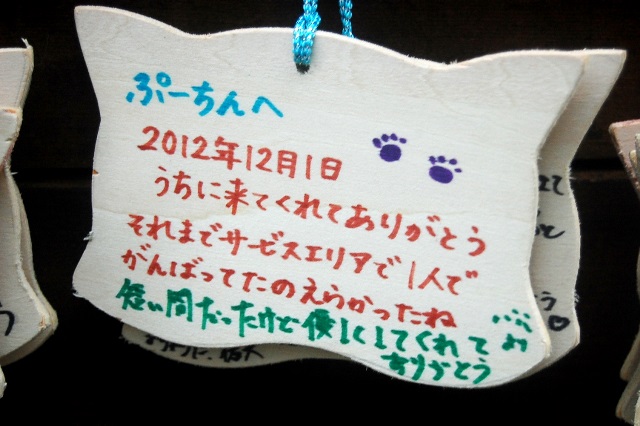 ぷーちんへ
2012年12月1日
うちに来てくれてありがとう
それまでサービスエリアで1人で
がんばってたのえらかったね
短い間だったけど優しくしてくれて
ありがとう